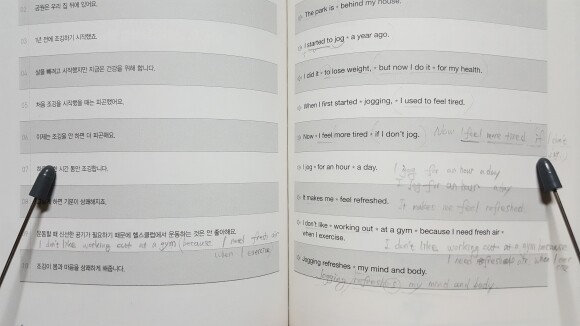 02 공원은 우리 집 뒤에 있어요.
03 1년 전에 조깅하기 시작했죠.
04 살을 빼려고 시작했지만 지금은 건강을 위해 합니다.
05 처음 조깅을 시작했을 때는 피곤했어요.
06 이제는 조깅을 안 하면 더 피곤해요.
07 시간 동안 조깅합니다.
하면 기분이 상쾌해지죠.
운동할 때 신선한 공기가 필요하기 때문에 헬스클럽에서 운동하는 것은 안 좋아해요.
I don't like working out at a gym because I need fresh air
when I exercise.
10 조깅이 몸과 마음을 상쾌하게 해줍니다.
The park is + behind my house.
I started to jog + a year ago.
I did it + to lose weight, + but now I do it + for my health.
When I first started + jogging, + I used to feel tired.
Now + I feel more tired + if I don't jog.
Now I feel more tired if I don't
I jog + for an hour + a day.
I jog for an hour a day
I jog for an hour a day
It makes me + feel refreshed.
It makes me feel refreshed.
I don't like + working out + at a gym + because I need fresh air +
when I exercise.
I don't like working out at a gym because
I need refresh air when I
Jogging refreshes + my mind and body.
Jogging refreshes my mind and body.